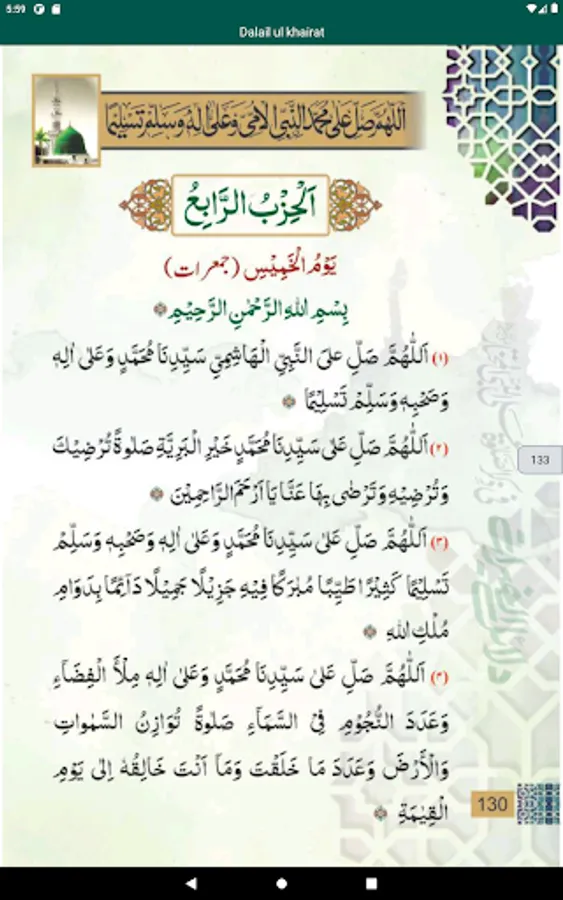 5:59
Dalail ul khairat
اَللّٰهُمَّ صَلِّ عَلٰى مُحَمَّدِ النَّبِيِّ الْاُمِّيِّ وَعَلٰى اٰلِهٖ وَسَلِّمْ تَسْلِيْمًا
اَلْحِزْبُ الرَّابِعُ
يَوْمُ الْخَمِيْسِ (جمعرات)
بِسْمِ اللهِ الرَّحْمٰنِ الرَّحِيْمِ
(١) اَللّٰهُمَّ صَلِّ عَلَى النَّبِيِّ الْهَاشِمِيِّ سَيِّدِنَا مُحَمَّدٍ وَعَلٰى اٰلِهٖ
وَصَحْبِهٖ وَسَلِّمْ تَسْلِيْمًا
(٢) اَللّٰهُمَّ صَلِّ عَلٰى سَيِّدِنَا مُحَمَّدٍ خَيْرِ الْبَرِيَّةِ صَلٰوةً تُرْضِيْكَ
وَتُرْضِيْهِ وَتَرْضٰى بِهَا عَنَّا يَا اَرْحَمَ الرَّاحِمِيْنَ
133
(٣) اَللّٰهُمَّ صَلِّ عَلٰى سَيِّدِنَا مُحَمَّدٍ وَعَلٰى اٰلِهٖ وَصَحْبِهٖ وَسَلِّمْ
تَسْلِيْمًا كَثِيْرًا طَيِّبًا مُّبٰرَكًا فِيْهِ جَزِيْلًا جَمِيْلًا دَآئِمًا بِدَوَامِ
مُلْكِ اللهِ
(۴) اَللّٰهُمَّ صَلِّ عَلٰى سَيِّدِنَا مُحَمَّدٍ وَعَلٰى اٰلِهٖ مِلْأَ الْفِضَآءِ
وَعَدَدَ النُّجُوْمِ فِى السَّمَآءِ صَلٰوةً تُوَازِنُ السَّمٰوَاتِ
وَالْأَرْضَ وَعَدَدَ مَا خَلَقْتَ وَمَآ اَنْتَ خَالِقُهٗ اِلٰى يَوْمِ
الْقِيٰمَةِ
130